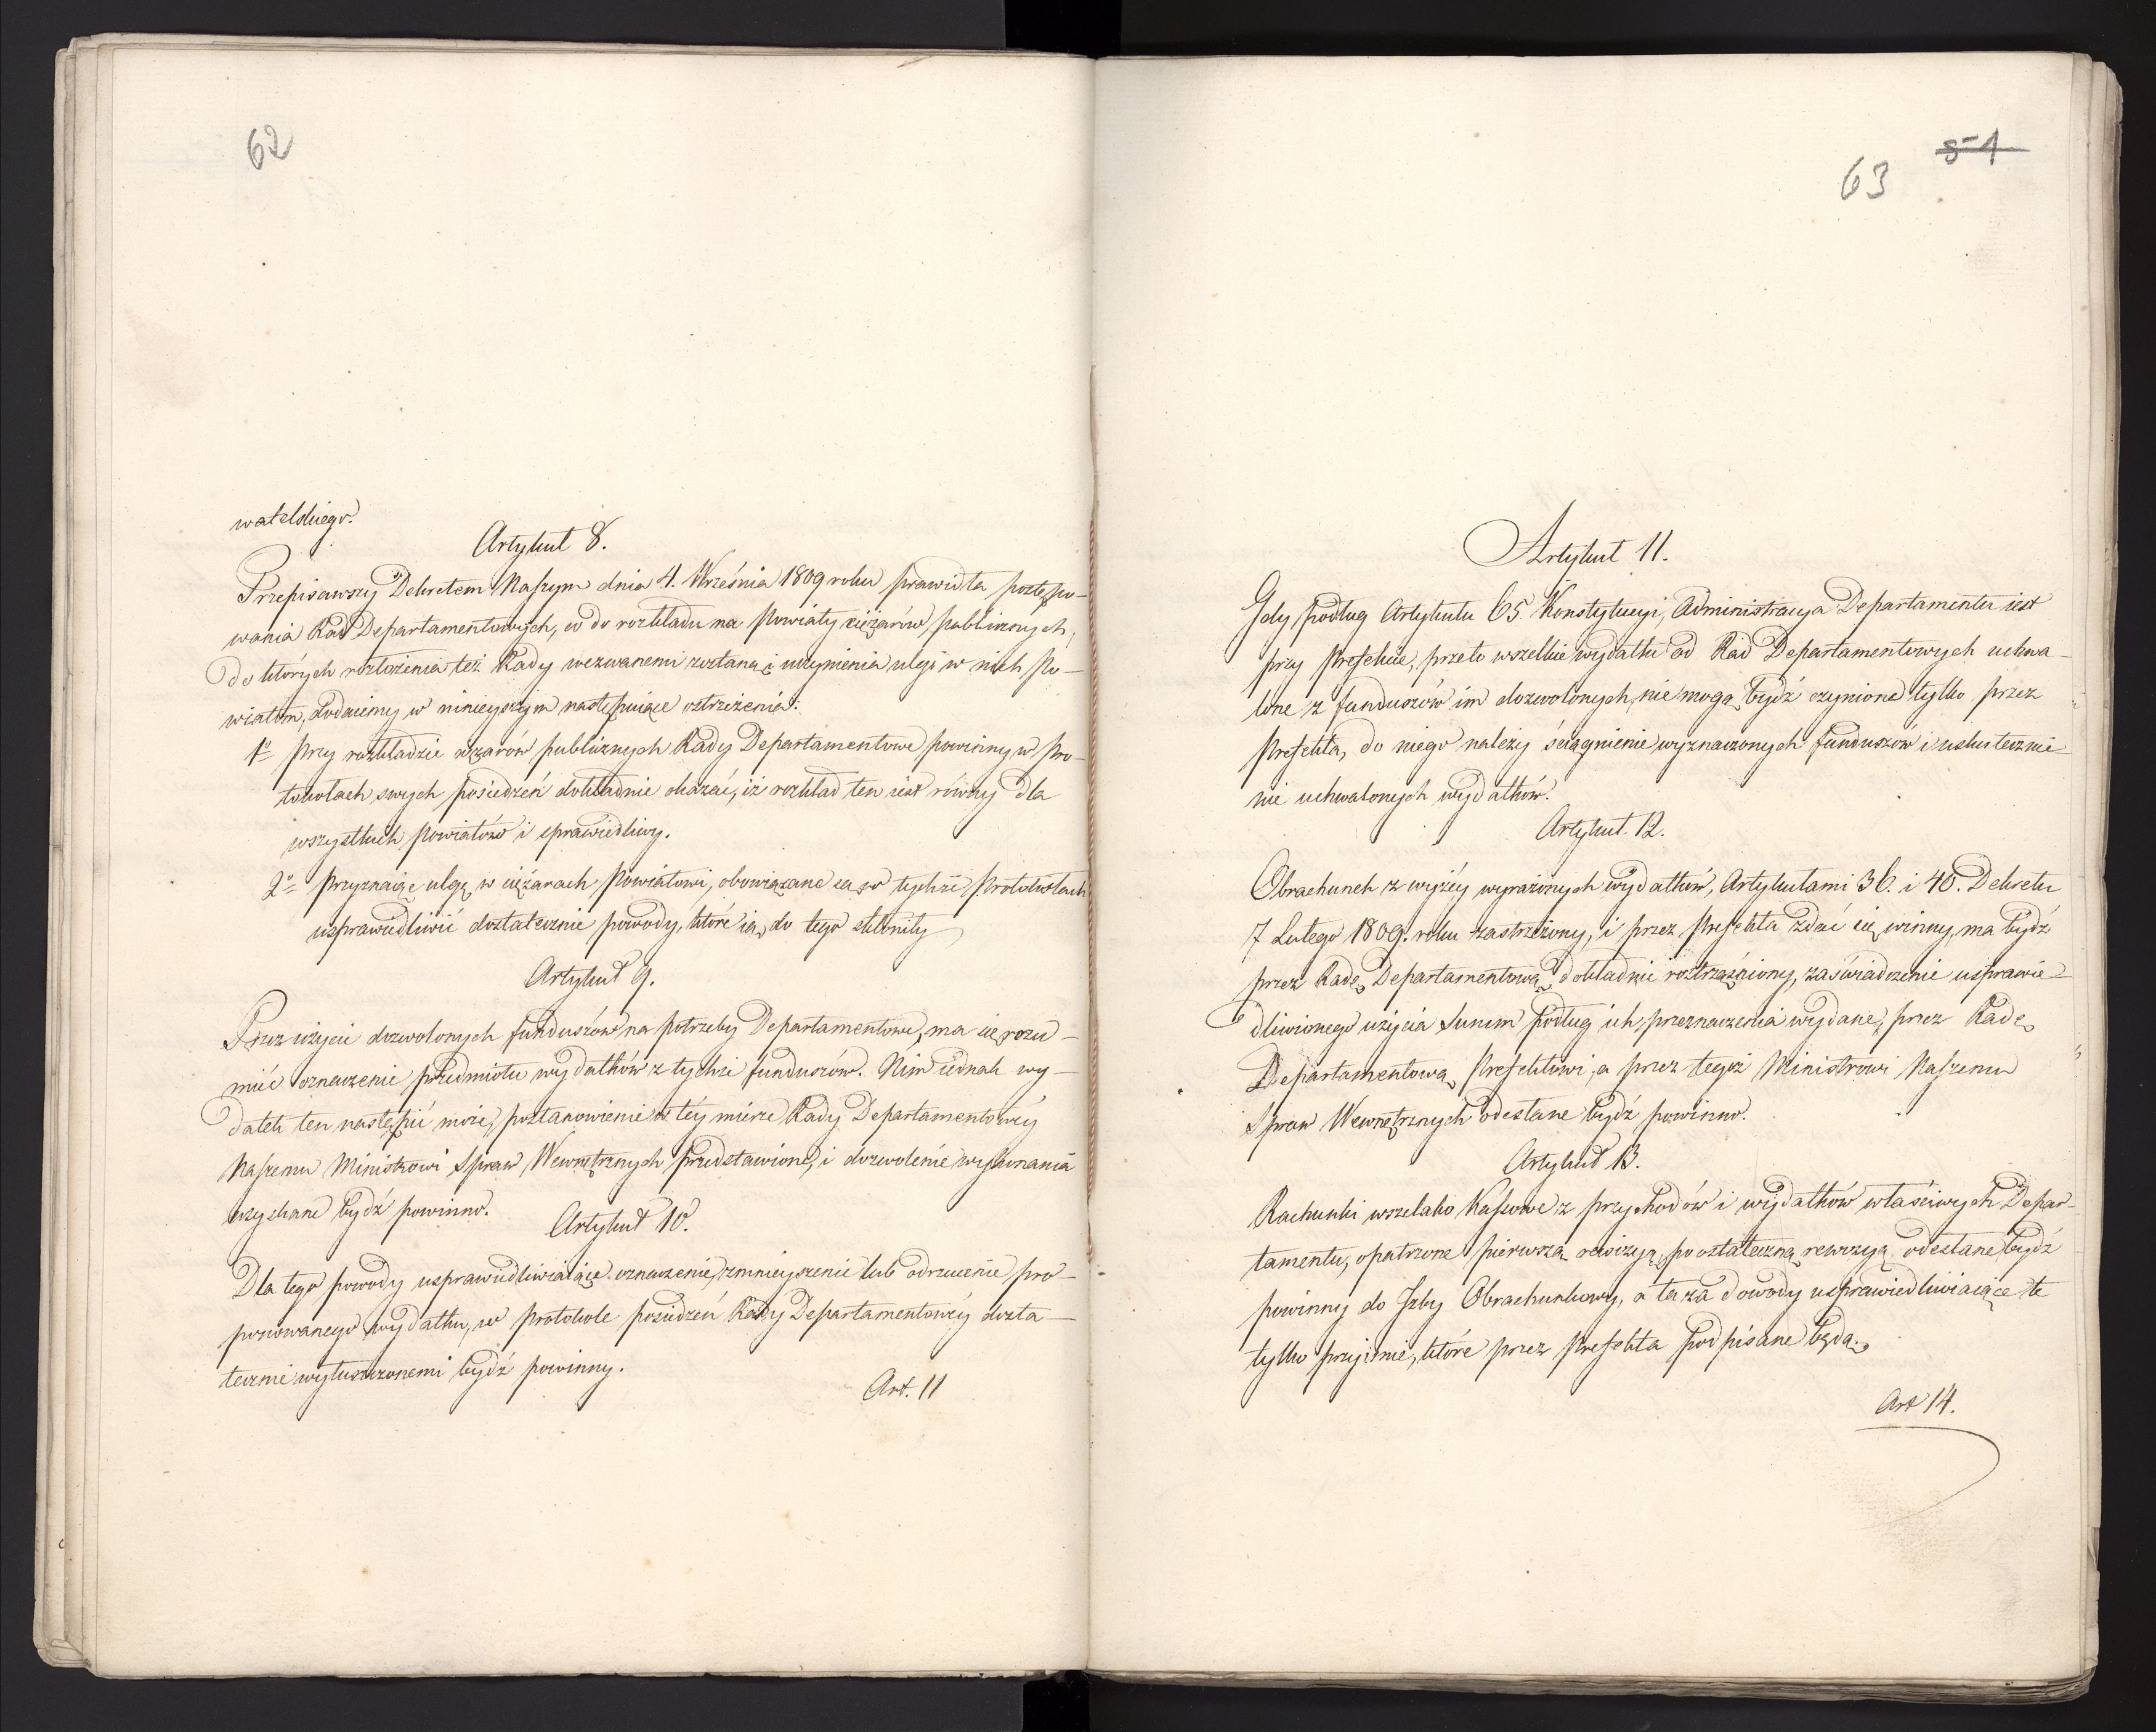 62
watelskiego.
Artykuł 8.
Przepisawszy Dekretem Naszym dnia 4. Września 1809 roku prawidła postępo-
wania Rad Departamentowych, co do rozkładu na Powiaty ciężarów publicznych,
do których rozłożenia też Rady wezwanemi zostaną i uczynienia ulgi w nich Po-
wiatom, dodaiemy w ninieyszym następuiące ostrzeżenia:
1º Przy rozkładzie ciężarów publicznych Rady Departamentowe powinny w Pro-
tokołach swych posiedzeń dokładnie okazać, iż rozkład ten iest równy dla
wszystkich Powiatów i sprawiedliwy.
2º Przyznaiąc ulgę w ciężarach Powiatowi, obowiązane są w tychże Protokołach
usprawiedliwić dostatecznie powody, które ią do tego skłoniły
Artykuł 9.
Przez użycie dozwolonych funduszów na potrzeby Departamentowe, ma się rozu-
mieć oznaczenie przedmiotu wydatków z tychże funduszów. Nim iednak wy-
datek ten nastąpić może, postanowienie w téy mierze Rady Departamentowéy
Naszemu Ministrowi Spraw Wewnętrznych przedstawione, i dozwolenie wykonania
uzyskane bydź powinno.
Artykuł 10.
Dla tego powody usprawiedliwiaiące oznaczenie, zmnieyszenie lub odrzucenie pro-
ponowanego wydatku, w protokole posiedzeń Rady Departamentowéy dosta-
tecznie wyłuszczonemi bydź powinny.
Art. 11
51
63
Artykuł 11.
Gdy podług Artykułu 65. Konstytucyi, Administracya Departamentu iest
przy Prefekcie, przeto wszelkie wydatki od Rad Departamentowych uchwa-
lone z funduszów im dozwolonych, nie mogą bydź czynione tylko przez
Prefekta, do niego należy ściągnienie wyznaczonych funduszów i uskutecznie-
nie uchwalonych wydatków.
Artykuł 12.
Obrachunek z wyżéy wyrażonych wydatków, Artykułami 36. i 40. Dekretu
7 Lutego 1809. roku zastrzeżony, i przez Prefekta zdać się winny, ma bydź
przez Radę Departamentową dokładnie roztrząśniony, zaświadczenie usprawie-
dliwionego użycia Summ podług ich przeznaczenia wydane, przez Radę
Departamentową Prefektowi, a przez tegoż Ministrowi Naszemu
Spraw Wewnętrznych odesłane bydź powinno.
Artykuł 13.
Rachunki wszelako Kassowe z przychodów i wydatków właściwych Depar-
tamentu, opatrzone pierwszą rewizyą, po ostateczną rewizyą odesłane bydź
powinny do Izby Obrachunkowey, a ta za dowody usprawiedliwiaiące te
tylko przyimie, które przez Prefekta podpisane będą.
Art 14.